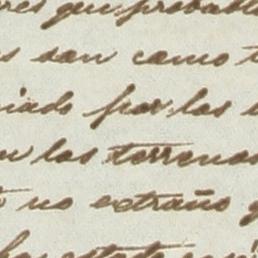 res que probabl
s son como t
iado por las
n los terrenos
no extraño q
ha estado